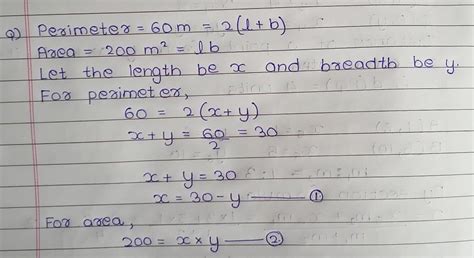 Q) Perimeter = 60m = 2(l+b)
Area = 200 m² = lb
Let the length be x and breadth be y.
For perimeter,
60 = 2(x+y)
x+y = 60/2 = 30
x+y = 30
x = 30-y ——— ①
For area,
200 = x×y —— ②